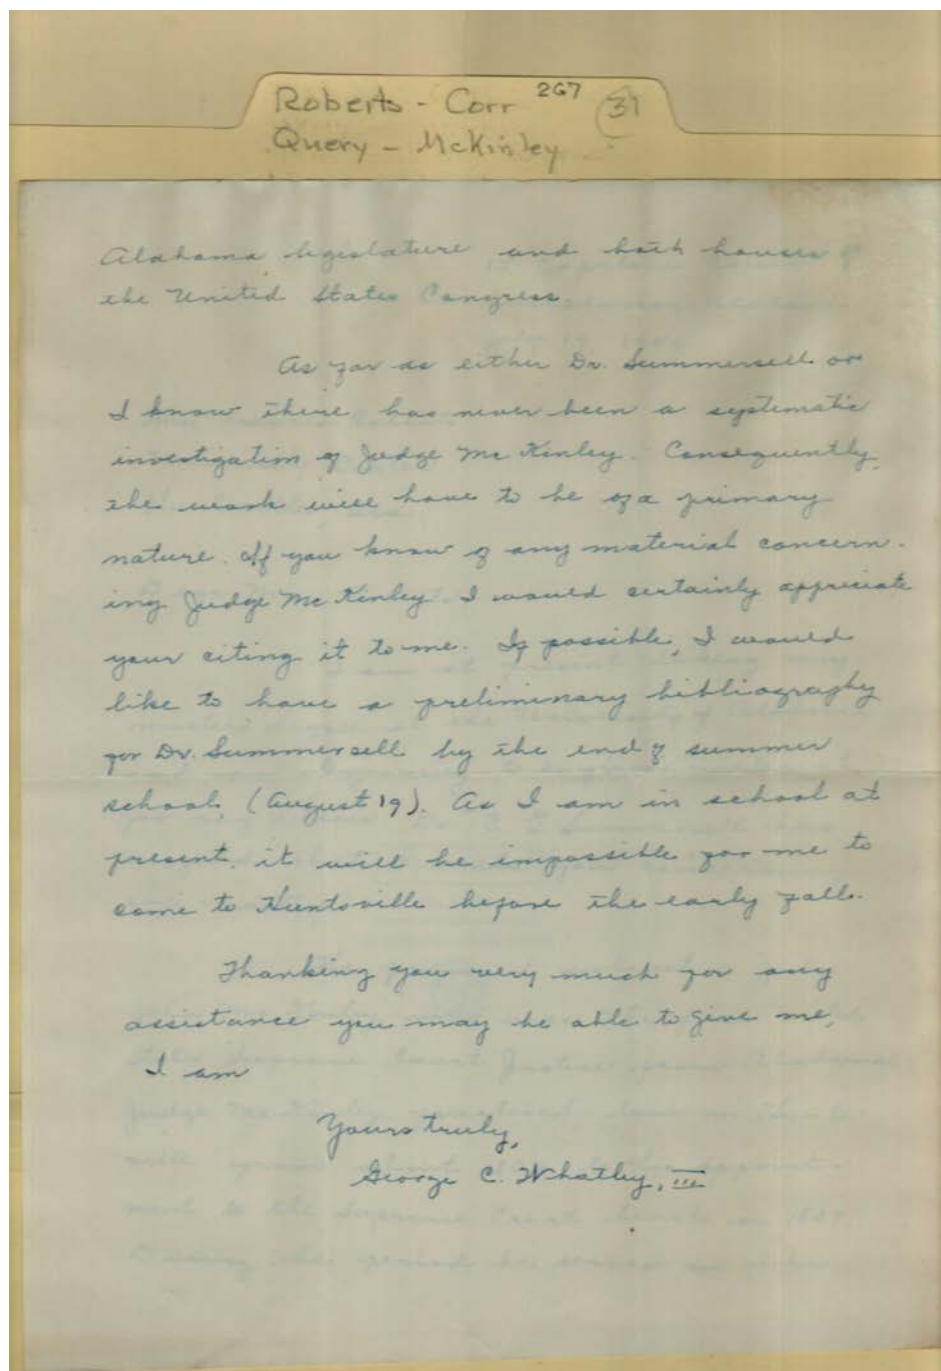 Roberts - Corr 267 (31)
Query - McKinley
Alabama legislature and both houses of
the United States Congress.
As far as either Dr. Summersell or
I know there has never been a systematic
investigation of Judge McKinley. Consequently,
the work will have to be of a primary
nature. If you know of any material concern-
ing Judge McKinley I would certainly appreciate
your citing it to me. If possible, I would
like to have a preliminary bibliography
for Dr. Summersell by the end of summer
school, (August 19). As I am in school at
present, it will be impossible for me to
come to Huntsville before the early fall.
Thanking you very much for any
assistance you may be able to give me,
I am
Yours truly,
George C. Whatley, III
Supreme Court Justice from Alabama
Judge McKinley
ment to the Supreme Court bench in
During the period he served in